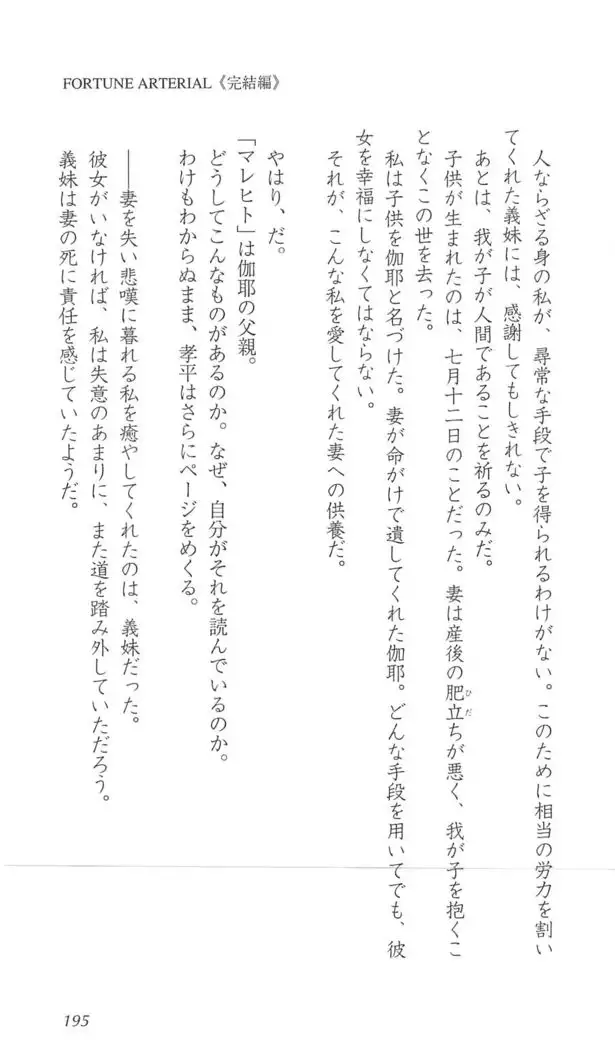 FORTUNE ARTERIAL《完結編》
人ならざる身の私が、尋常な手段で子を得られるわけがない。このために相当の労力を割い
てくれた義妹には、感謝してもしきれない。
あとは、我が子が人間であることを祈るのみだ。
子供が生まれたのは、七月十二日のことだった。妻は産後の肥立ちが悪く、我が子を抱くこ
ひだ
となくこの世を去った。
私は子供を伽耶と名づけた。妻が命がけで遺してくれた伽耶。どんな手段を用いてでも、彼
女を幸福にしなくてはならない。
それが、こんな私を愛してくれた妻への供養だ。
やはり、だ。
「マレヒト」は伽耶の父親。
どうしてこんなものがあるのか。なぜ、自分がそれを読んでいるのか。
わけもわからぬまま、孝平はさらにページをめくる。
――妻を失い悲嘆に暮れる私を癒やしてくれたのは、義妹だった。
彼女がいなければ、私は失意のあまりに、また道を踏み外していただろう。
義妹は妻の死に責任を感じていたようだ。
195